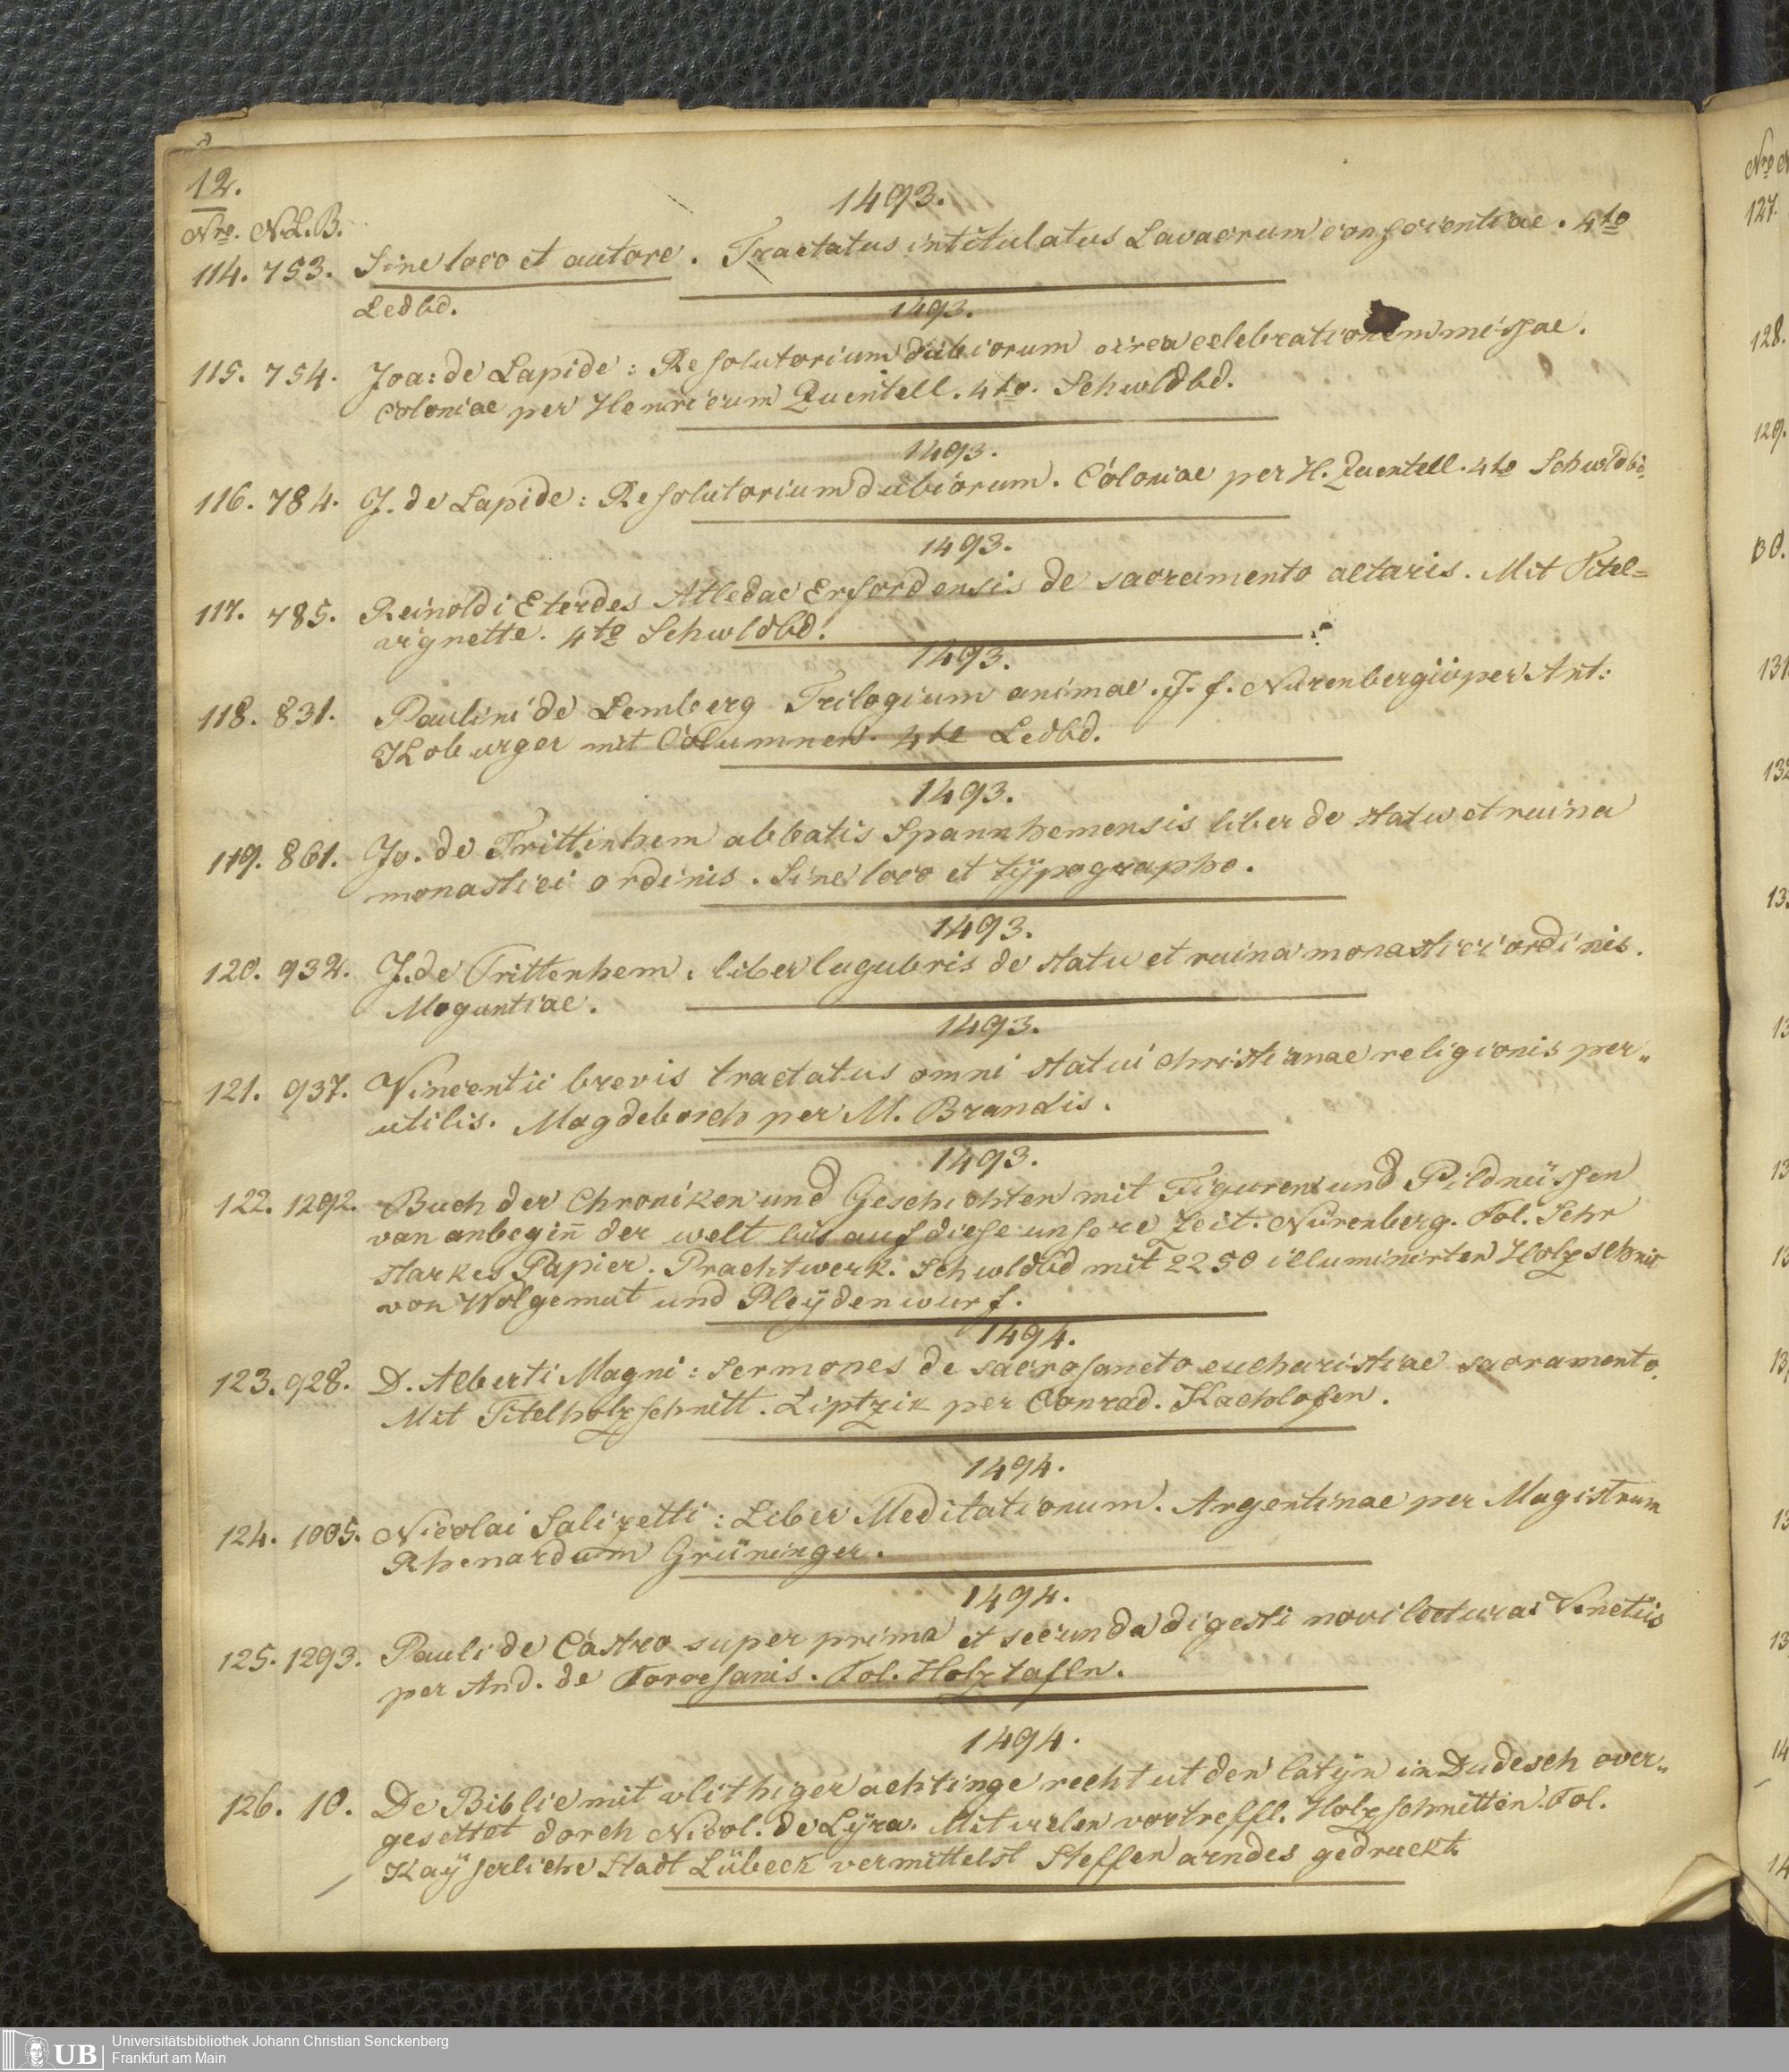 12.
1493.
Nro. N.L.B.
114. 753. Sine loco et autore. Tractatus intitulatus Lavacrum conscientiae. 4to
Ledbd.
1493.
115. 754. Joa: de Lapide: Resolutorium dubiorum circa celebrationem missae.
Coloniae per Henricum Quentell. 4to. Schwldbd.
1493.
116. 784. J. de Lapide: Resolutorium dubiorum. Coloniae per H. Quentell. 4to Schwldbd.
1493.
117. 785. Reinoldi Eterdes Atledae Erfordensis de sacramento altaris. Mit Titel=
vignette. 4to Schwldbd.
1493.
118. 831. Paulini de Lemberg Trilogium animae. J. f. Nürenbergii per Ant:
Koburger mit Columnen. 4to Ledbd.
1493.
119. 861. Jo. de Trittenhem abbatis Spannhemensis liber de statu et ruina
monastici ordinis. Sine loco et typographo.
1493.
120. 932. J. de Trittenhem. liber lugubris de statu et ruina monastici ordinis.
Moguntiae.
1493.
121. 937. Vincentii brevis tractatus omni statui christianae religionis per„
utilis. Magdeborch per M. Brandis.
1493.
122. 1292. Buch der Chroniken und Geschichten mit Figuren und Pildnüssen
van anbegin̄ der welt bis auf diese unsere Zeit. Nürenberg. Fol. Sehr
starkes Papier. Prachtwerk. Schwldbd mit 2250 illuminirten Holzschnit
von Wolgemut und Pleÿdenwurf.
1494.
123. 928. D. Alberti Magni: Sermones de sacrosancto eucharistiae sacramento.
Mit Titelholzschnitt. Liptzik per Conrad. Kachlofen.
1494.
124. 1005. Nicolai Salizetti: Liber Meditationum. Argentinae per Magistrum
Rhenardum Grüninger.
1494.
125. 1293. Pauli de Castro super prima et secunda digesti novi lectura: Venetiis
per And. de Torresanis. Fol. Holztafln.
1494.
126. 10. De Biblie mit vlithiger achtinge recht ut den latÿn in Dudesch over„
gesettet dorch Nicol. de Lÿra. Mit vielen vortreffl. Holzschnitten. Fol.
Kaÿserliche Stadt Lübeck vermittelst Steffen arndes gedruckt.
Nro
127.
128.
129.
30.
131
132
UB
Universitätsbibliothek Johann Christian Senckenberg
Frankfurt am Main